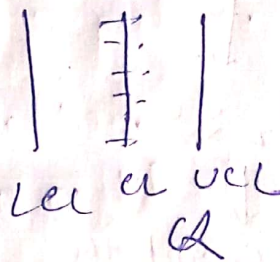 LCL CL UCL